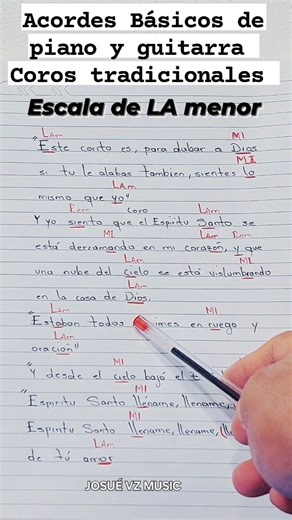 Acordes Básicos de
piano y guitarra
Coros tradicionales
Escala de LA menor
LAm MI
"Este canto es, para alabar a Dios
MI
si tu le alabas tambien, sientes lo
LAm
mismo que yo"
LAm Rem coro LAm
Y yo siento que el Espiritu Santo se
MI LAm Rem
está derramando en mi corazón, y que
LAm MI
una nube del cielo se está vislumbrando
LAm
en la casa de Dios.
LAm MI
"Estaban todos en ruego y
LAm
oración"
MI
"Y desde el cielo bajó el
MI
"Espiritu Santo lléname, lléname,
MI
Espiritu Santo lléname, lléname,
LAm
de tú amor
JOSUÉ VZ MUSIC